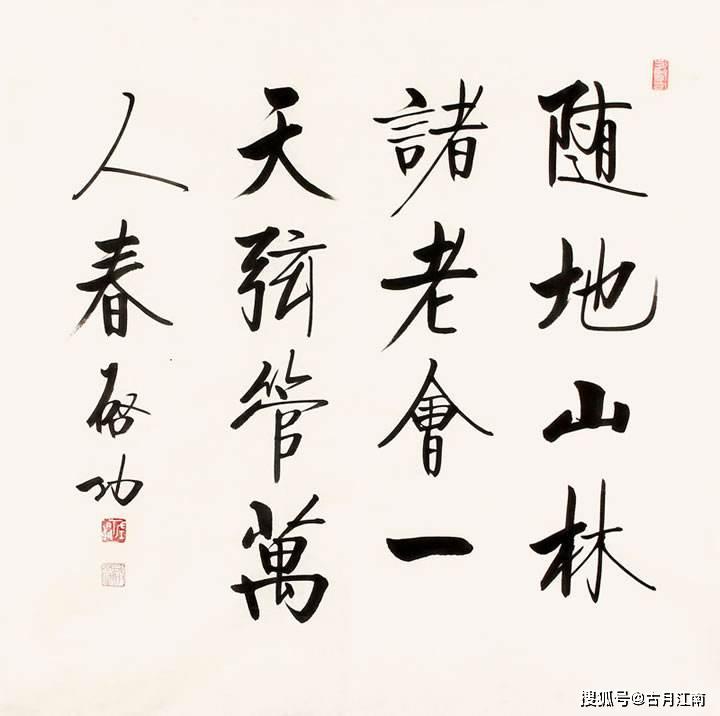 随地山林
諸老會一
天弦管萬
人春啓功
搜狐号@古月江南